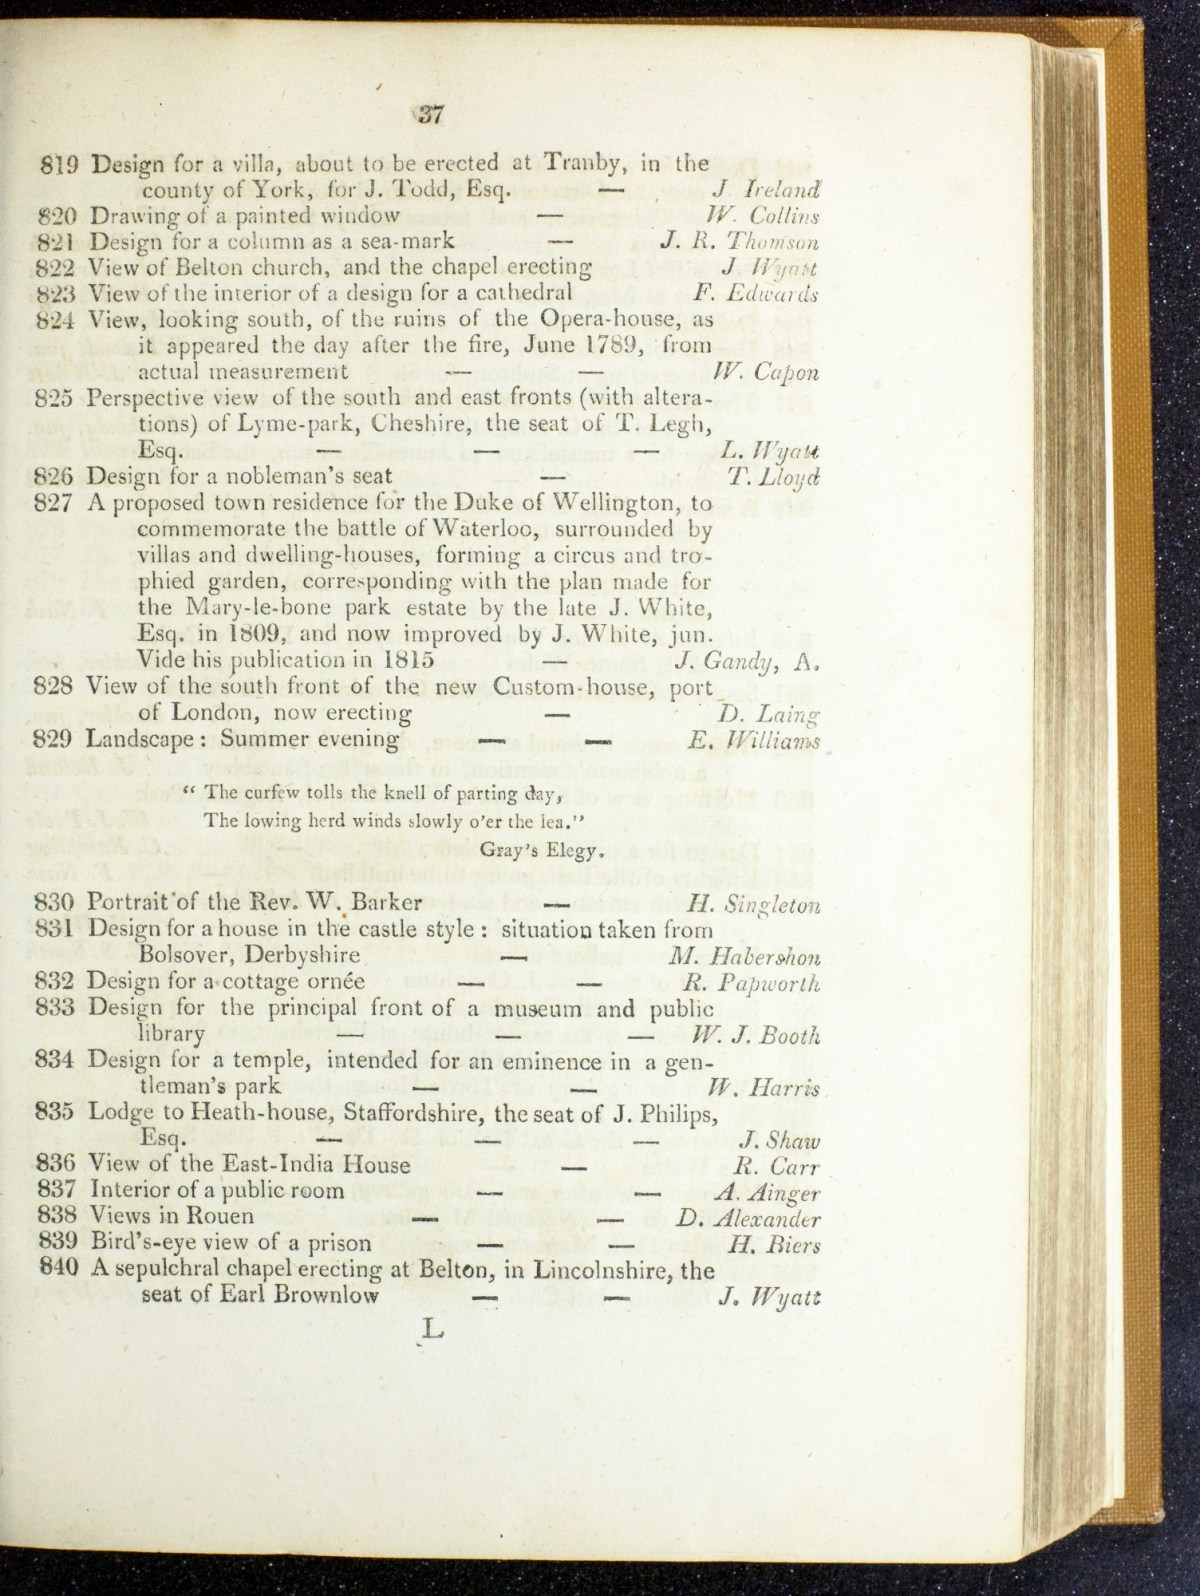 37
819 Design for a villa, about to be erected at Tranby, in the
county of York, for J. Todd, Esq. — J. Ireland
820 Drawing of a painted window — W. Collins
821 Design for a column as a sea-mark — J. R. Thomson
822 View of Belton church, and the chapel erecting J. Wyatt
823 View of the interior of a design for a cathedral F. Edwards
824 View, looking south, of the ruins of the Opera-house, as
it appeared the day after the fire, June 1789, from
actual measurement — — W. Capon
825 Perspective view of the south and east fronts (with altera-
tions) of Lyme-park, Cheshire, the seat of T. Legh,
Esq. — — — L. Wyatt
826 Design for a nobleman's seat — T. Lloyd
827 A proposed town residence for the Duke of Wellington, to
commemorate the battle of Waterloo, surrounded by
villas and dwelling-houses, forming a circus and tro-
phied garden, corresponding with the plan made for
the Mary-le-bone park estate by the late J. White,
Esq. in 1809, and now improved by J. White, jun.
Vide his publication in 1815 — J. Gandy, A.
828 View of the south front of the new Custom-house, port
of London, now erecting — D. Laing
829 Landscape: Summer evening — — E. Williams
“ The curfew tolls the knell of parting day,
The lowing herd winds slowly o'er the lea.”
Gray's Elegy.
830 Portrait of the Rev. W. Barker — H. Singleton
831 Design for a house in the castle style: situation taken from
Bolsover, Derbyshire — M. Habershon
832 Design for a cottage ornée — — R. Papworth
833 Design for the principal front of a museum and public
library — — — W. J. Booth
834 Design for a temple, intended for an eminence in a gen-
tleman's park — — W. Harris
835 Lodge to Heath-house, Staffordshire, the seat of J. Philips,
Esq. — — — J. Shaw
836 View of the East-India House — R. Carr
837 Interior of a public room — — A. Ainger
838 Views in Rouen — — D. Alexander
839 Bird's-eye view of a prison — — H. Biers
840 A sepulchral chapel erecting at Belton, in Lincolnshire, the
seat of Earl Brownlow — — J. Wyatt
L